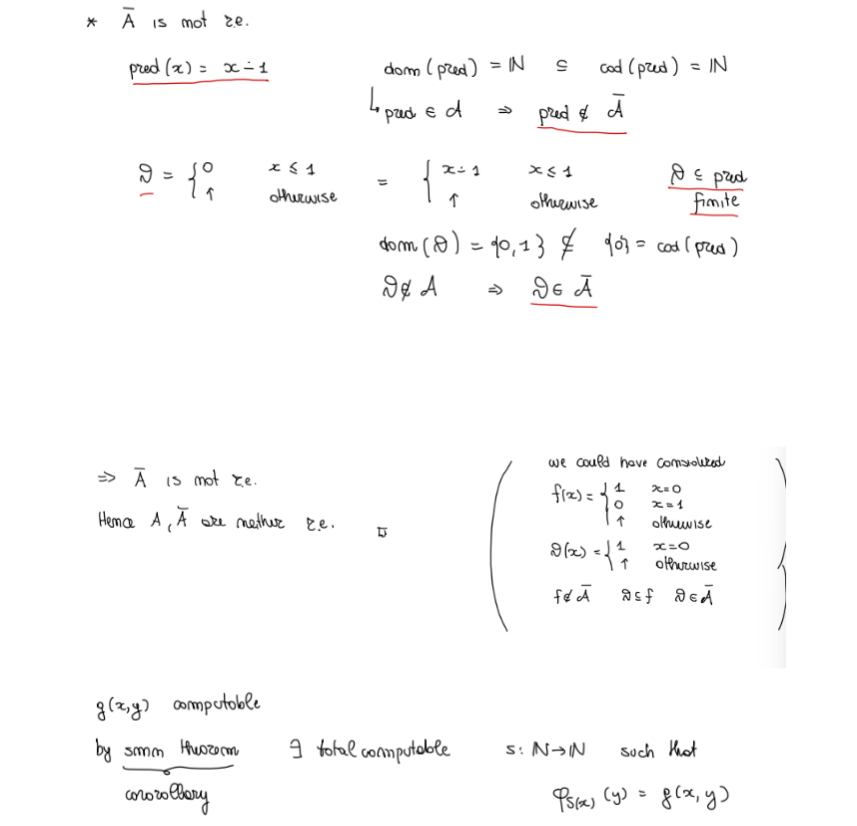 * Ā is not r.e.
pred(x) = x ∸ 1 dom(pred) = ℕ ⊆ cod(pred) = ℕ
↳ pred ∈ A ⇒ pred ∉ Ā
ϑ = { 0 x ≤ 1 ↑ otherwise = { x ∸ 1 x ≤ 1 ↑ otherwise ϑ ⊆ pred finite
dom(ϑ) = {0,1} ⊈ {0} = cod(pred)
ϑ ∉ A ⇒ ϑ ∈ Ā
⇒ Ā is not r.e.
Hence A, Ā are neither r.e. □
( we could have considered
f(x) = { 1 x=0 0 x=1 ↑ otherwise
ϑ(x) = { 1 x=0 ↑ otherwise
f ∉ Ā ϑ ⊆ f ϑ ∈ Ā )
g(x,y) computable
by smm theorem ∃ total computable s: ℕ→ℕ such that
corollary φ_{s(x)}(y) = g(x,y)